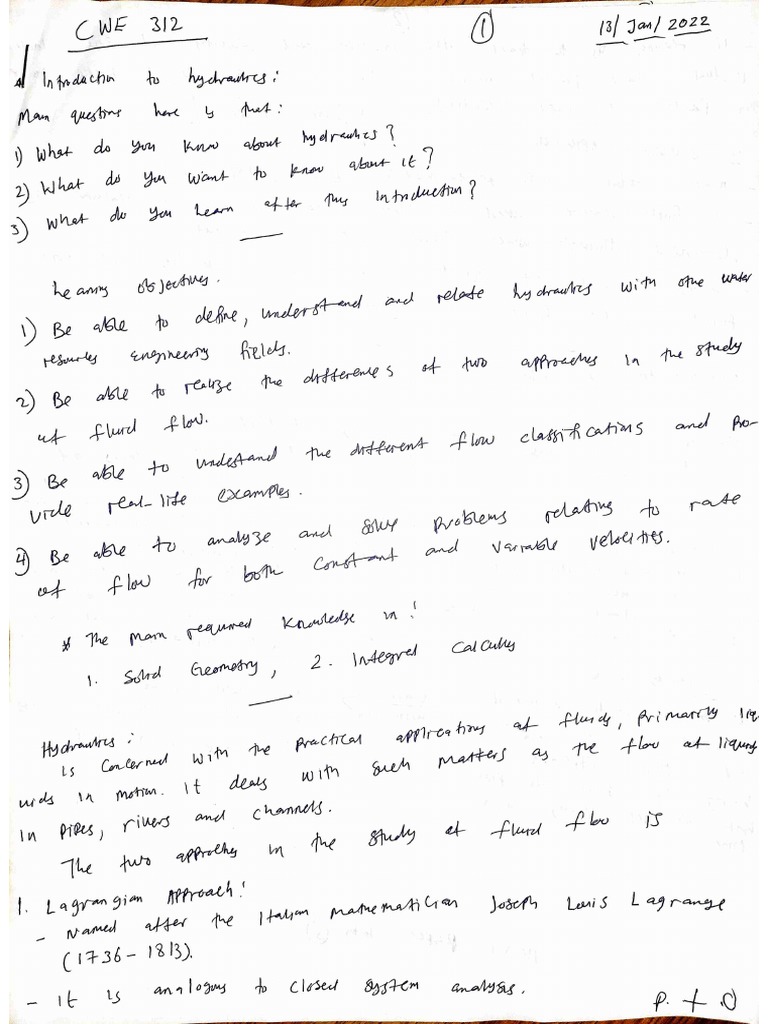 CWE 312
1
13/Jan/2022
Introduction to hydraulics:
Main questions here is that:
1) What do you know about hydraulics?
2) What do you want to know about it?
3) What do you learn after this introduction?
Learning objectives.
1) Be able to define, understand and relate hydraulics with other water
resources engineering fields.
2) Be able to realize the differences of two approaches in the study
of fluid flow.
3) Be able to understand the different flow classifications and pro-
vide real-life examples.
4) Be able to analyze and solve problems relating to rate
of flow for both constant and variable velocities.
* The main required knowledge in:
1. Solid Geometry, 2. Integral Calculus
Hydraulics:
is concerned with the practical applications of fluids, primarily liq-
uids in motion. It deals with such matters as the flow of liquids
in pipes, rivers and channels.
The two approaches in the study of fluid flow is
1. Lagrangian Approach:
- Named after the Italian mathematician Joseph Louis Lagrange
(1736-1813).
- It is analogous to closed system analysis.
P. t. O